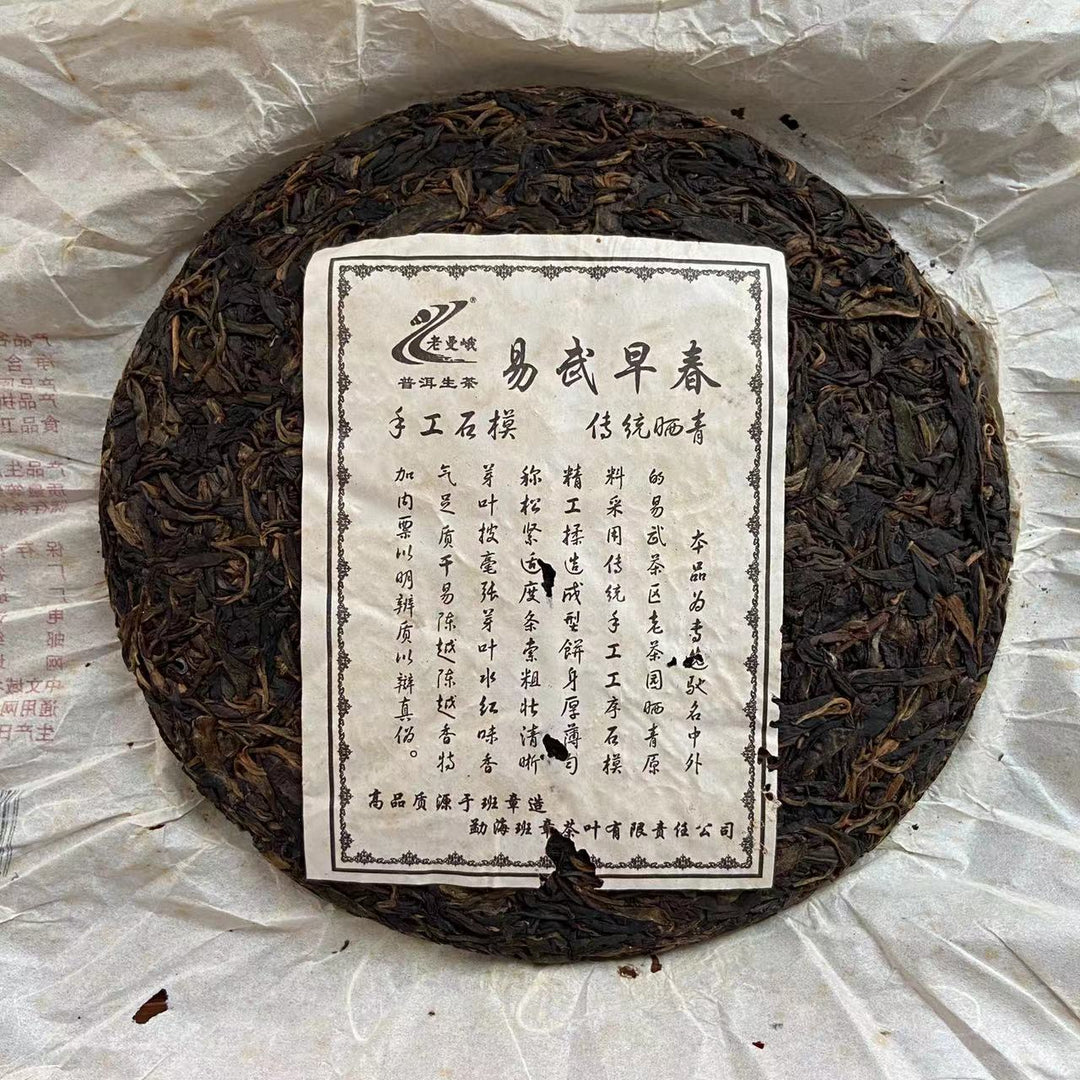 老曼峨®
普洱生茶
易武早春
手工石模 传统晒青
本品为专驰名中外
的易武茶区老茶园晒青原
料采用传统手工工序石模
精工揉造成型餅身厚薄匀
称松紧适度条索粗壮清晰
芽叶披毫张芽叶水红味香
气足质干易陈越陈越香特
加内票以明辨质以辩真伪。
高品质源于班章造
勐海班章茶叶有限责任公司